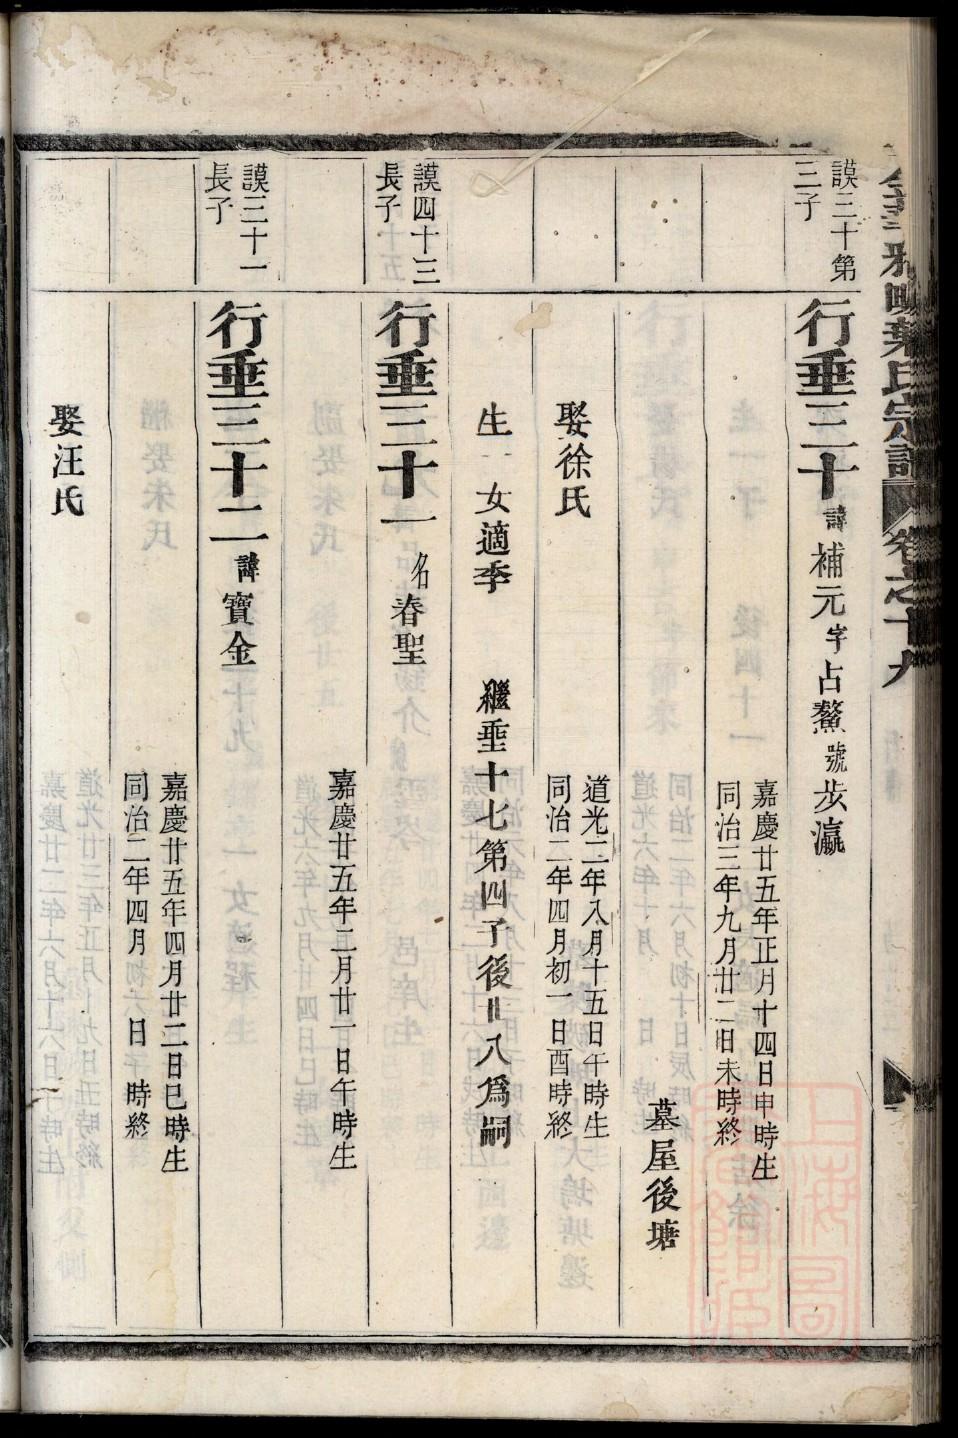 葉氏宗譜 卷之十九
謨三十第
三子
行垂三十 諱補元 字占鰲 號步瀛
嘉慶廿五年正月十四日申時生
同治三年九月廿二日未時終
墓屋後塘
娶徐氏
道光二年八月十五日午時生
同治二年四月初一日酉時終
生一女適季 繼垂十七第四子後廿八爲嗣
謨四十三
長子
行垂三十一 名春聖
嘉慶廿五年二月廿一日午時生
謨三十一
長子
行垂三十二 諱寶金
嘉慶廿五年四月廿二日巳時生
同治二年四月 日 時終
娶汪氏